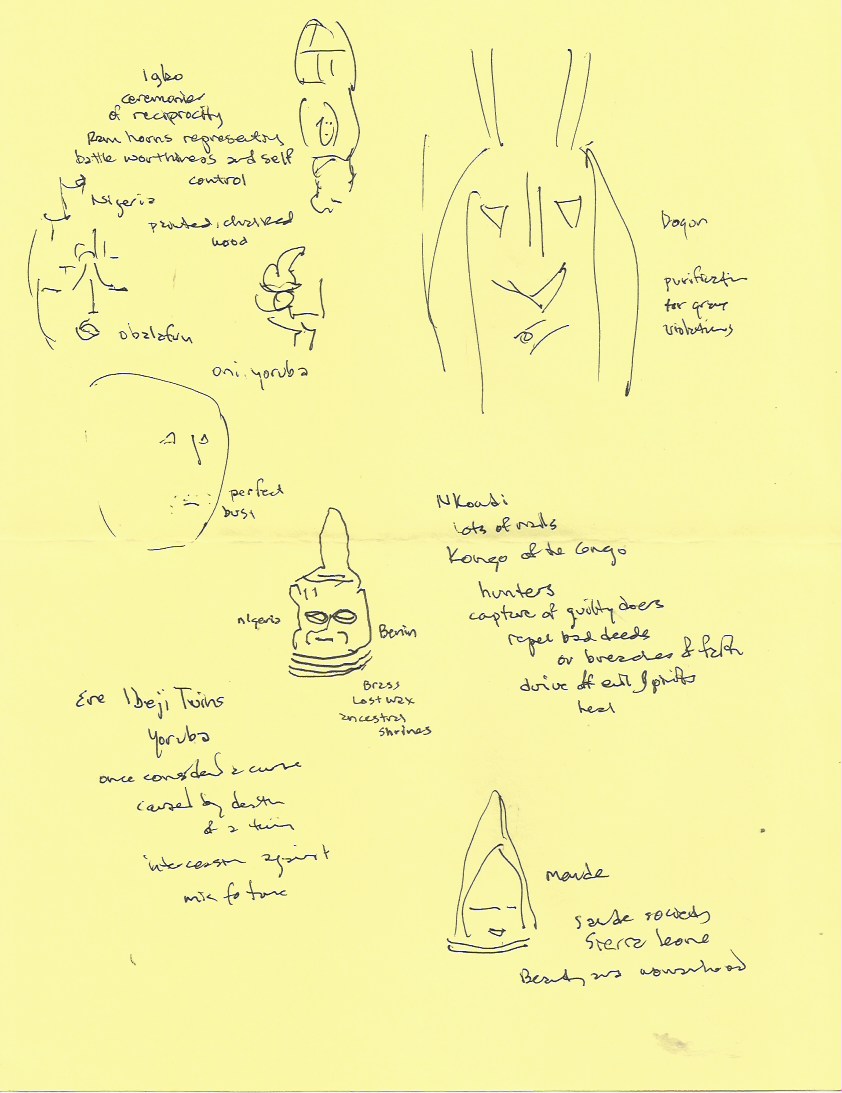 Igbo
ceremonies
of reciprocity
Ram horns representing
battle worthiness and self
control
Nigeria
painted, chalked
wood
obalafun
oni yoruba
Dogon
purification
for grave
violations
perfect
bust
Nkondi
lots of nails
Kongo of the Congo
hunters
capture of guilty doers
repel bad deeds
or breaches of faith
drive off evil spirits
heal
nigeria
Benin
Brass
Lost wax
ancestral
shrines
Ere Ibeji Twins
Yoruba
once considered a curse
caused by death
of a twin
intercession against
misfortune
Mende
Sande society
Sierra Leone
Beauty and womanhood